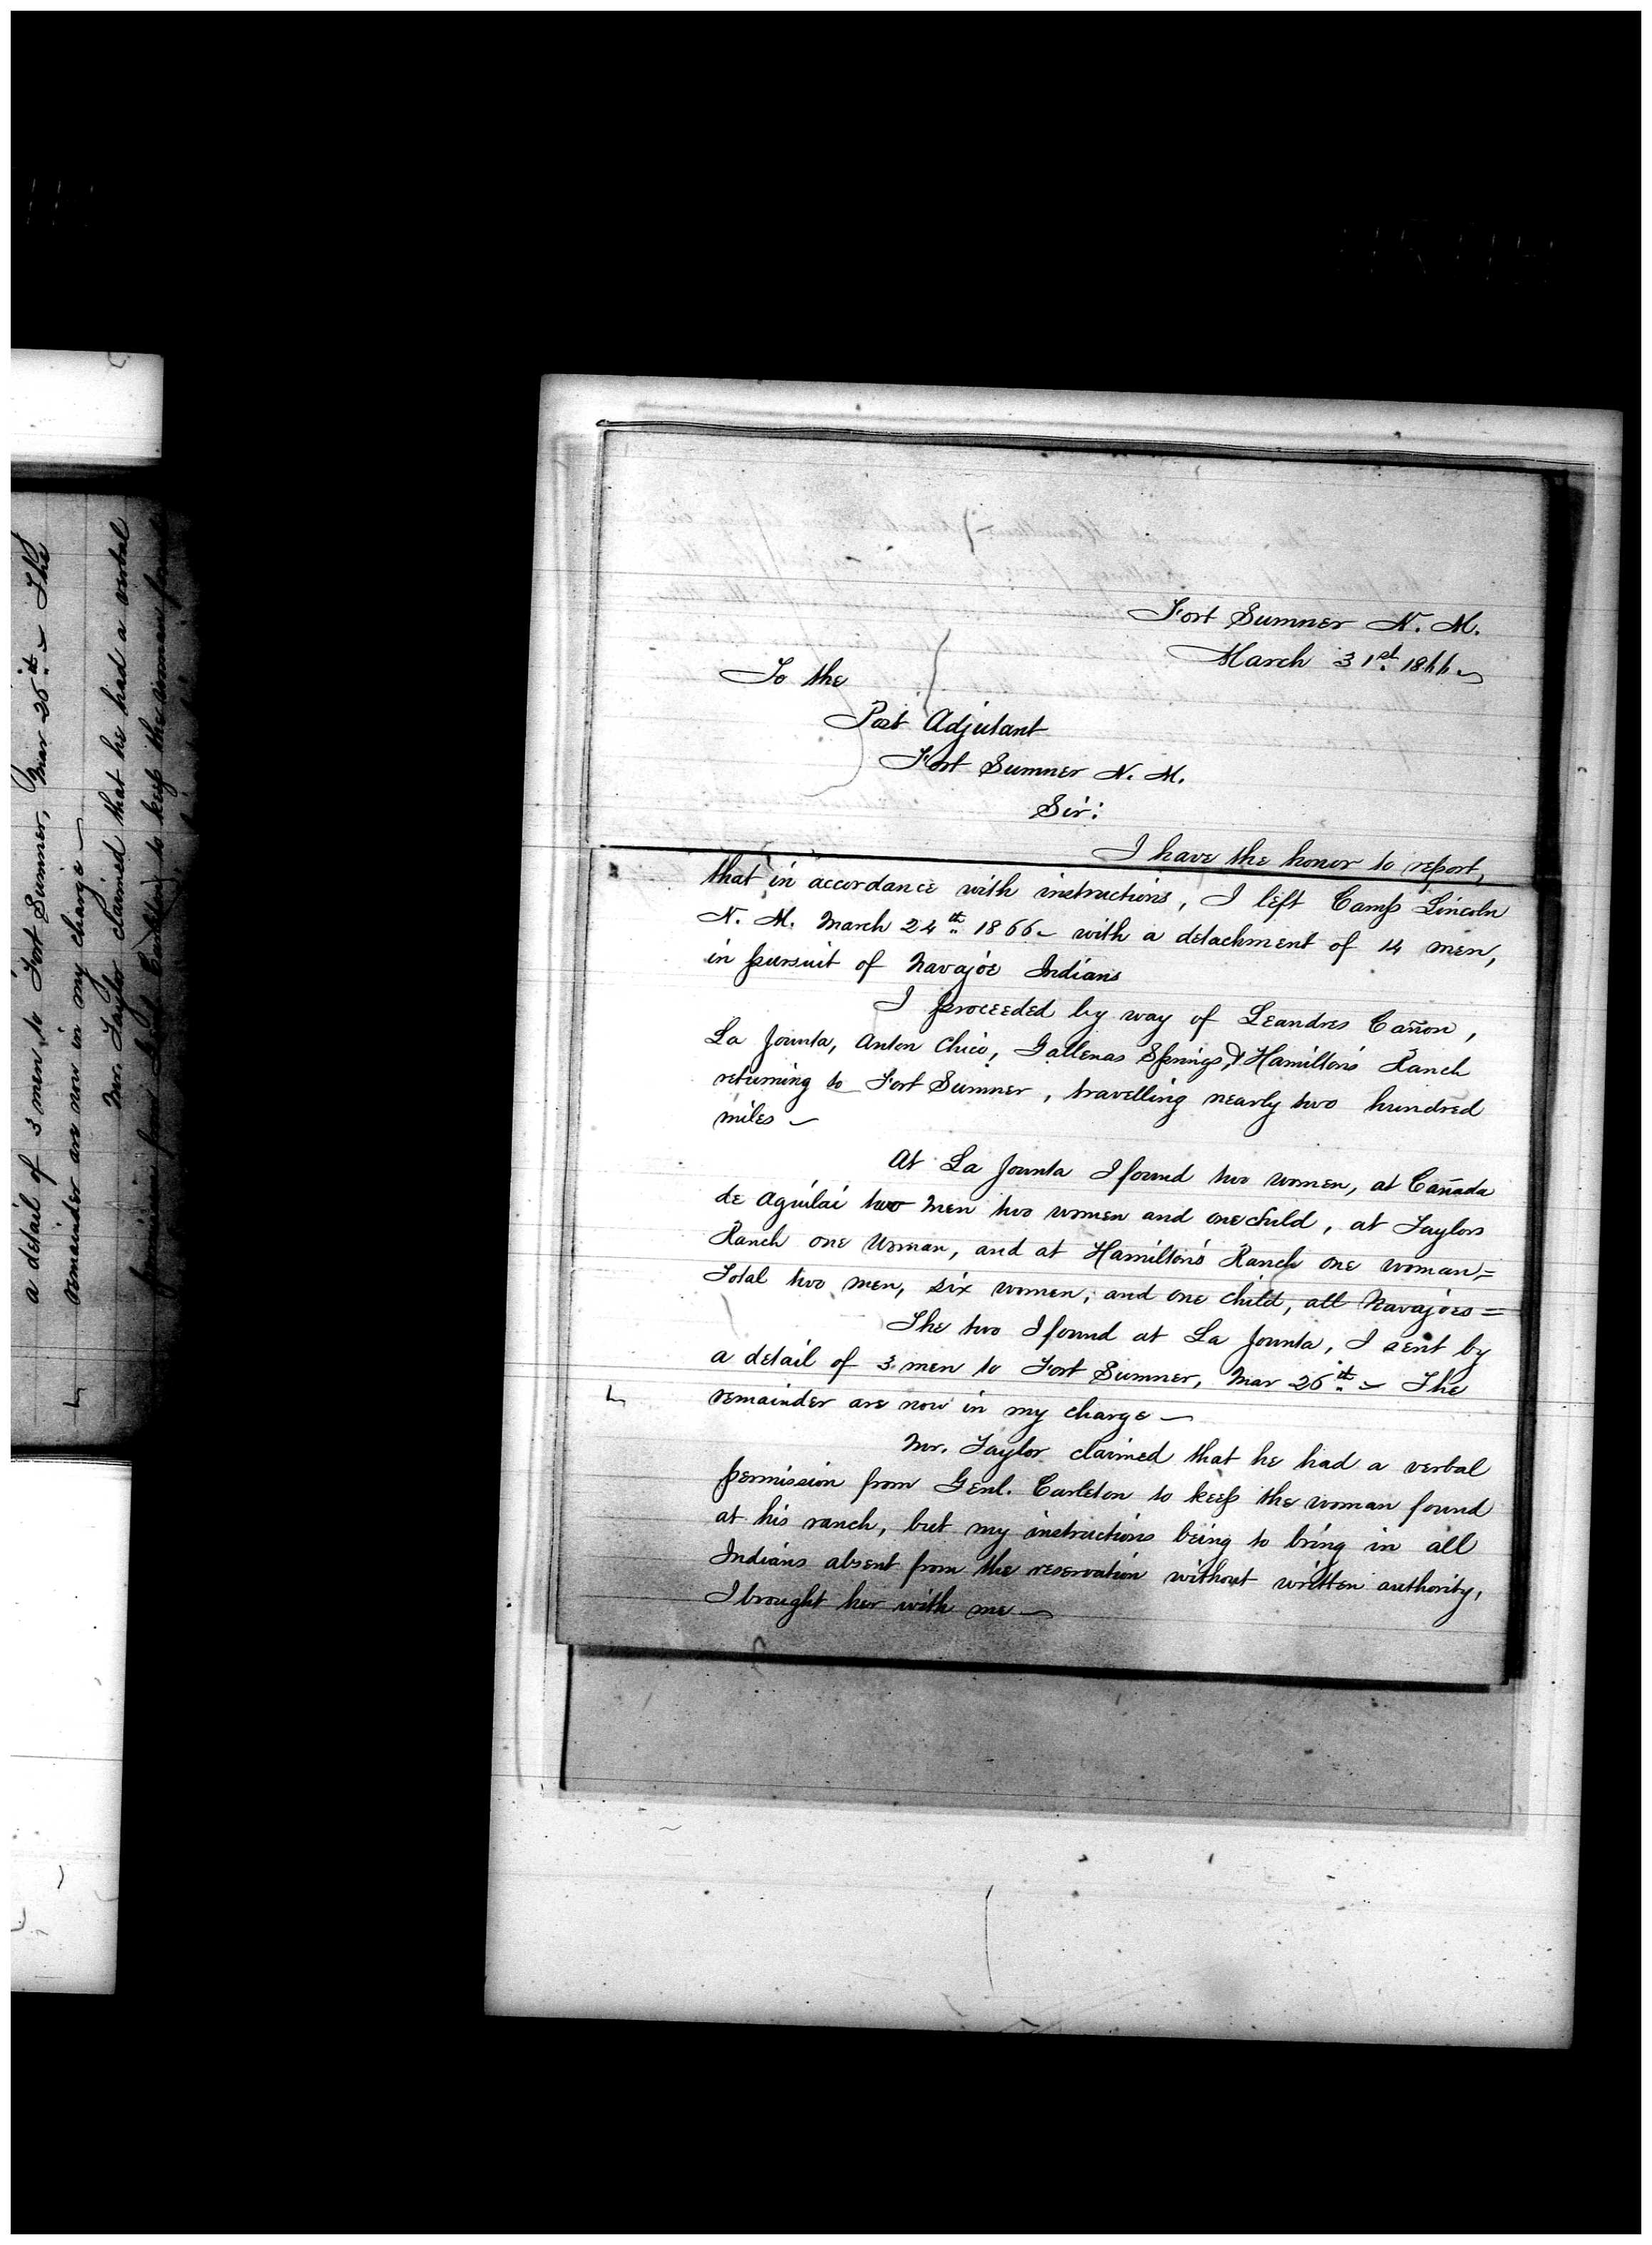 a detail of 3 men to Fort Sumner, Mar 26th. The
remainder are now in my charge —
Mr. Taylor claimed that he had a verbal
permission from Genl. Carleton to keep the woman found
Fort Sumner N. M.
March 31st. 1866.
To the
Post Adjutant
Fort Sumner N. M.
Sir:
I have the honor to report,
that in accordance with instructions, I left Camp Lincoln
N. M. March 24th. 1866 with a detachment of 14 men,
in pursuit of Navajoe Indians
I proceeded by way of Leandres Cañon,
La Jounta, Anton Chico, Gallenas Springs, & Hamilton's Ranch
returning to Fort Sumner, travelling nearly two hundred
miles —
At La Jounta I found two women, at Cañada
de Aguilai two men two women and one child, at Taylors
Ranch one woman, and at Hamilton's Ranch one woman =
Total two men, six women, and one child, all Navajoes =
The two I found at La Jounta, I sent by
a detail of 3 men to Fort Sumner, Mar 26th. — The
remainder are now in my charge —
Mr. Taylor claimed that he had a verbal
permission from Genl. Carleton to keep the woman found
at his ranch, but my instructions being to bring in all
Indians absent from the reservation without written authority,
I brought her with me —